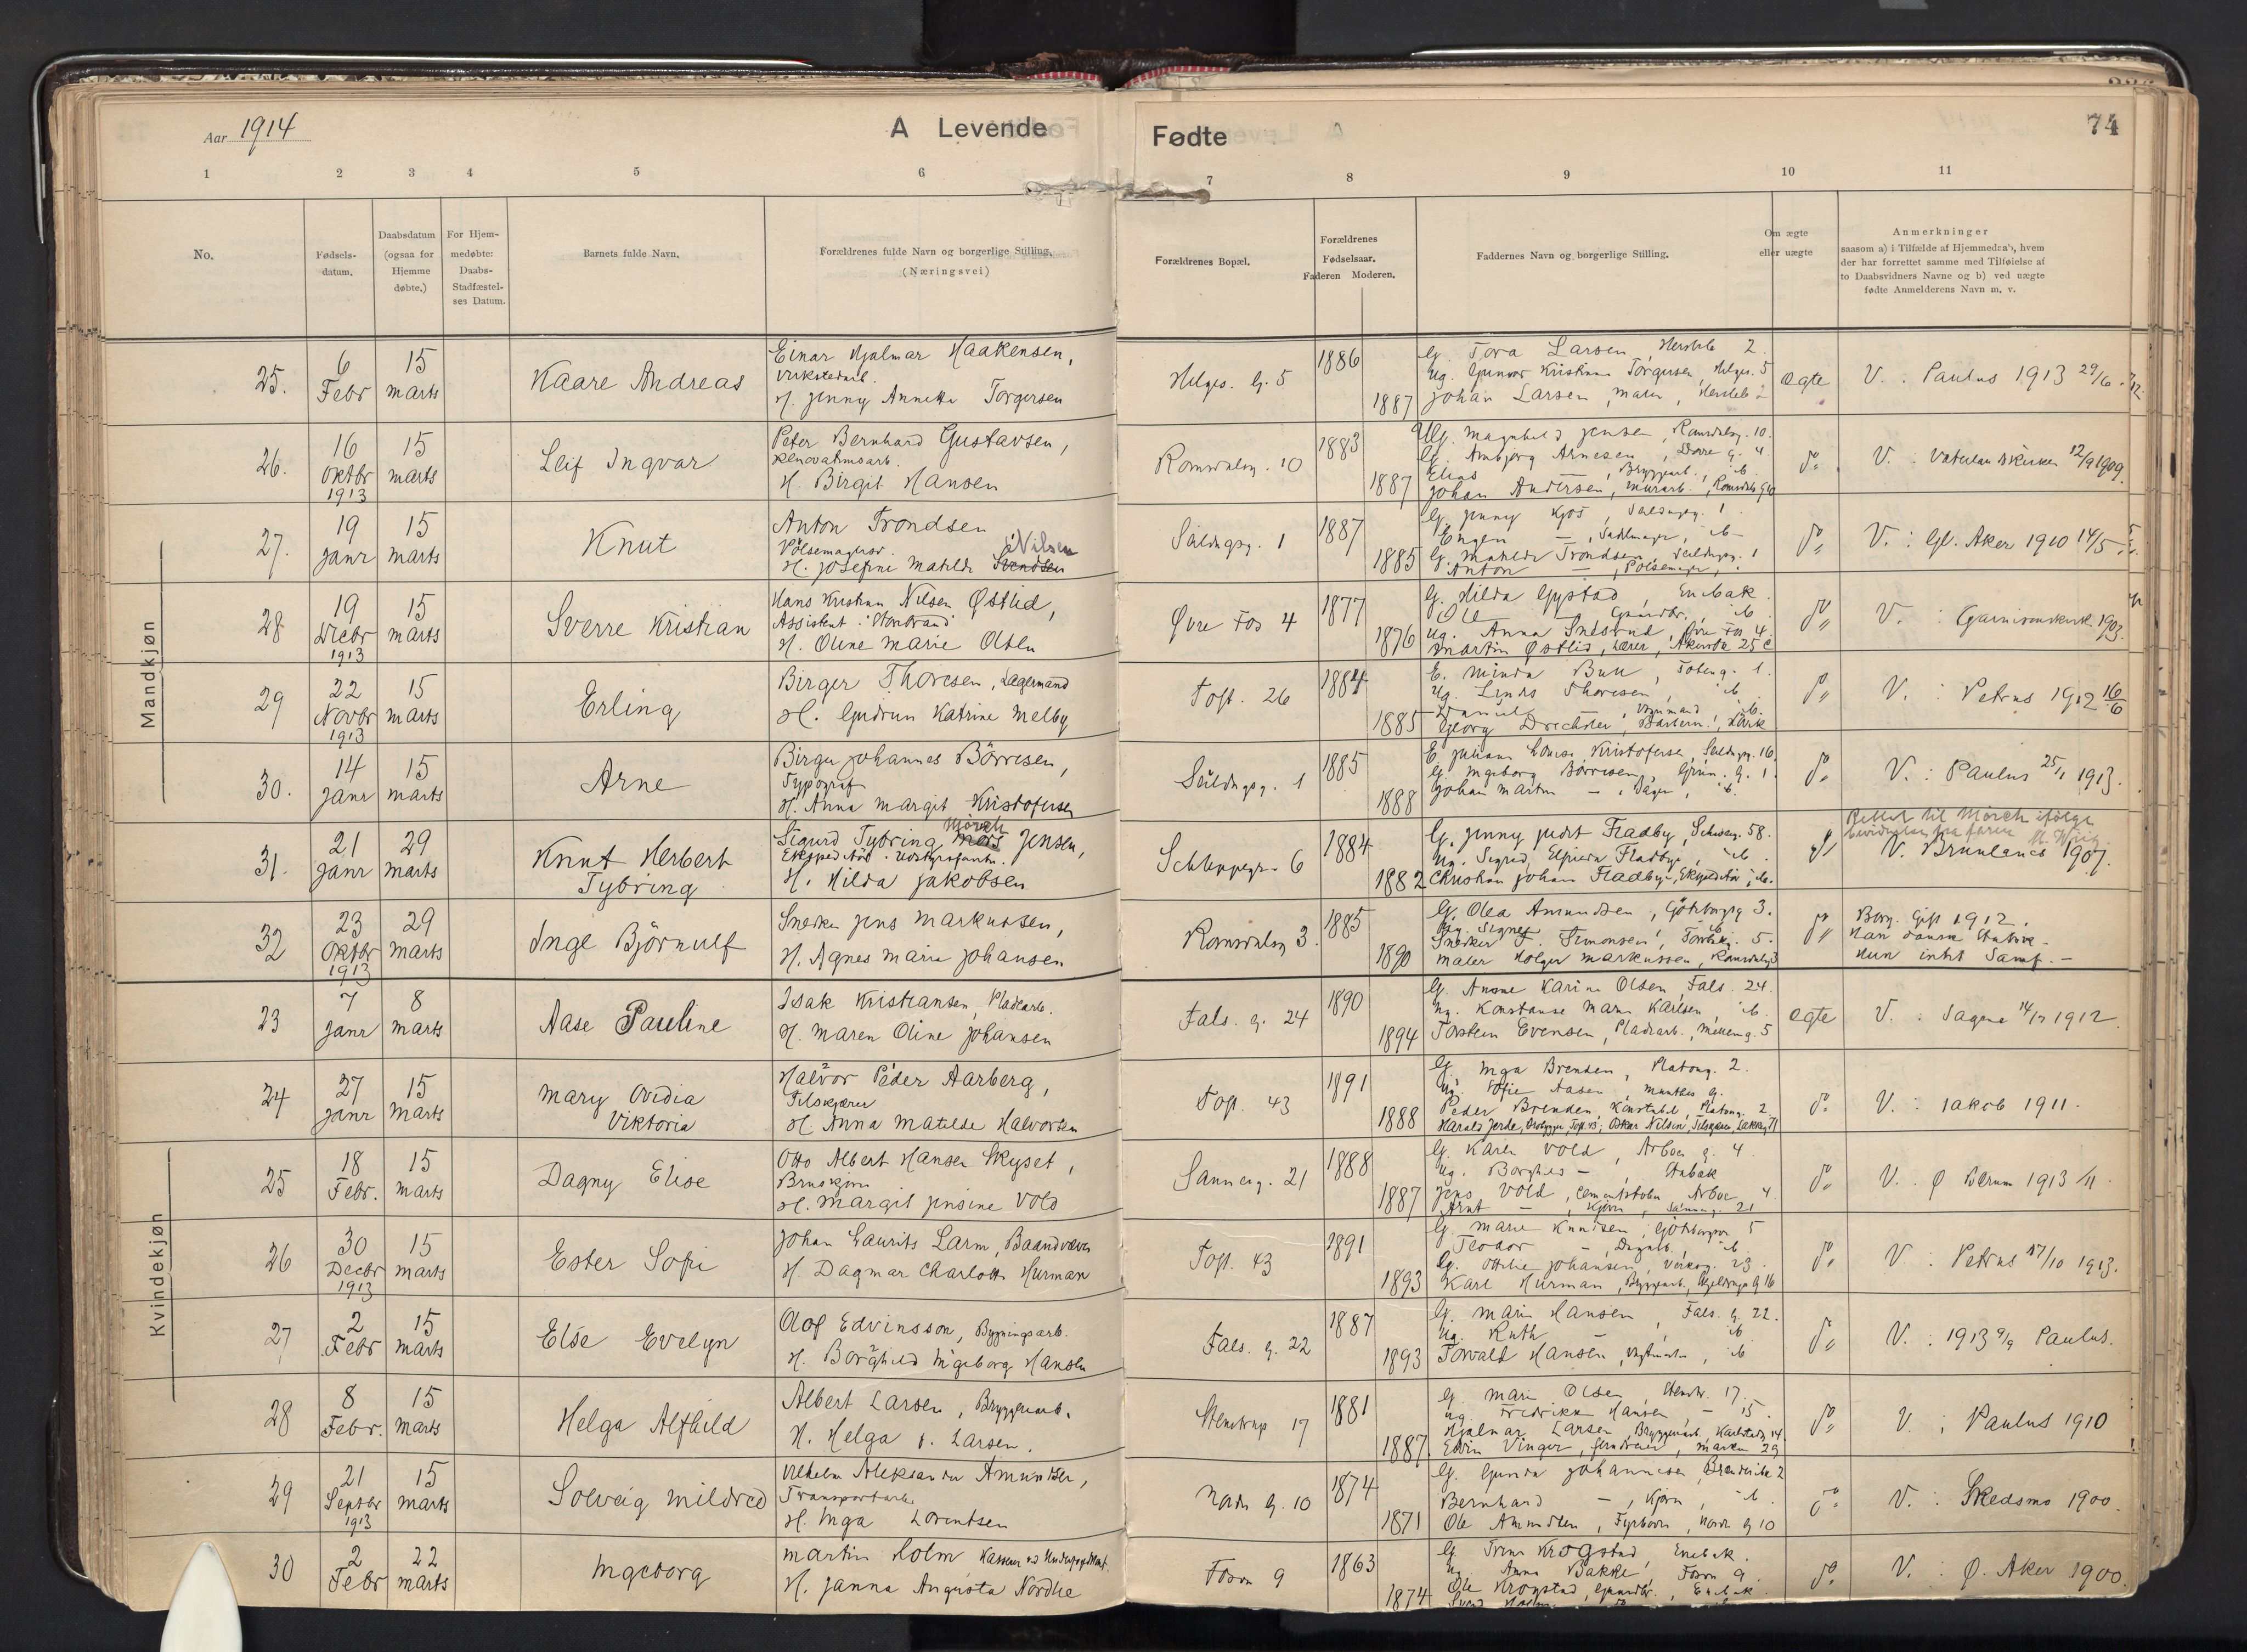 Aar 1914
A Levende Fødte
74
1 2 3 4 5 6 7 8 9 10 11
No.
Fødsels-
datum.
Daabsdatum
(ogsaa for
Hjemme
døbte.)
For Hjem-
medøbte:
Daabs-
Stadfæstel-
ses Datum.
Barnets fulde Navn.
Forældrenes fulde Navn og borgerlige Stilling.
(Næringsvei)
Forældrenes Bopæl.
Forældrenes
Fødselsaar.
Faderen Moderen.
Faddernes Navn og borgerlige Stilling.
Om ægte
eller uægte
Anmerkninger
saasom a) i Tilfælde af Hjemmedaab, hvem
der har forrettet samme med Tilføielse af
to Daabsvidners Navne og b) ved uægte
fødte Anmelderens Navn m. v.
Mandkjøn
25.
6
Febr
15
marts
Kaare Andreas
Einar Hjalmar Haakensen,
Verkstedarb.
H. Jenny Annette Torgersen
Helges. g. 5
1886
1887
G. Tora Larsen, Herslebs 2.
Ug. Gunvor Kristiane Torgersen, Helges. 5
Johan Larsen, maler, Herslebs 2
ægte
V. : Paulus 1913 29/6
26.
16
Oktbr
1913
15
marts
Leif Ingvar
Peter Bernhard Gustavsen,
Renovationsarb.
H. Birgit Hansen
Romsdalsg. 10
1883
1887
Ug. Magnhild Jensen, Romsdalsg. 10.
G. Arnbjørg Arnesen, Dovre g. 4.
Elias — , Bryggeriarb., ib.
Johan Andersen, murarb., Romsdals g 10
do
V. : Vaterlands Kirken 12/9 1909.
27.
19
Janr
15
marts
Knut
Anton Trondsen
Pølsemager.
H. Josefine Matilde Svendsen Nilsen
Seildugsg. 1
1887
1885
G. Jenny Kjos, Seildugsg. 1
Engen — , Sadlmager, ib
G. Matilde Trondsen, Seildugsg. 1
Anton — , Pølsemager,
do
V. : Gl. Aker 1910 14/5
28
19
Decbr
1913
15
marts
Sverre Kristian
Hans Kristian Nilsen Østlid,
Assistent i "Storbrand"
H. Oline Marie Olsen
Øvre Fos 4
1877
1876
G. Hilda Gystad, Enebak
Ole — Gaardbr., ib.
Ug. Anna , Øvre Fos 4.
Martin Østlid, Lærer, Akersvn 25 c
do
V. : Garnisonskirk. 1903.
29
22
Novbr
1913
15
marts
Erling
Birger Thoresen, Lagermand
H. Gudrun Katrine Melby
Toft. 26
1884
1885
E. Minda Bull, Toteng. 1.
Ug. Linds Thoresen, ib
— , ib.
Georg Drechsler, , Larvik
do
V. : Petrus 1912 16/6
30.
14
Janr
15
marts
Arne
Birger Johannes Börresen,
Typograf
H. Anna Margit Kristofersen
Seildugsg. 1
1885
1888
E. Juliane Lovise Kristofersen, Seildugsg. 16
G. Ingeborg Børresen, Grün. g. 1.
Johan Martin — , , ib.
do
V. : Paulus 25/1 1913.
31.
21
Janr
29
marts
Knut Herbert
Tybring
Sigurd Tybring Mørch Jensen,
Ekspeditør i
H. Hilda Jakobsen
Schleppegr. 6
1884
1882
G. Jenny Judit Fladby, Schweig. 58.
Ug. Sigrid Elpiera Fladby, ib.
Christian Johan Fladby, Ekspeditør, ib.
do
Rettet til Mörch ifölge
V. Brunlanes 1907.
32
23
Oktbr
1913
29
marts
Inge Björnulf
Snedker Jens Markussen,
H. Agnes Marie Johansen
Romsdalsg 3.
1885
1890
G. Olea Amundsen, Götebergsg 3.
Ug. Signe — ib
Snedker F. Simonsen, 5.
Maler Holger Markussen, Romsdalsg 3
do
Borg. Gift 1912.
Han dansk Statsb. –
Hun intet Samf. –
Kvindekjøn
23
7
Janr
8
marts
Aase Pauline
Isak Kristiansen, Pladearb.
H. Maren Oline Johansen
Fals. g. 24
1890
1894
G. Anne Karine Olsen, Fals. 24.
Ug. Konstanse Marie Karlsen, ib.
Torstein Evensen, Pladearb., Mølleng. 5
ægte
V. : Sagene 14/12 1912
24
27
Janr
15
marts
Mary Ovidia
Viktoria
Halvor Peder Aarberg,
Filskjærer
H. Anna Matilde Halvorsen
Toft. 43
1891
1888
G. Inga Brenden, Platoug. 2.
Ug. Sofie Aasen, Munthes g.
Peder Brenden, Konstabel, Platoug. 2
Harald Jerde, , Toft. 43, Oskar Nilsen, Filskjærer,
do
V. : Jakob 1911.
25
18
Febr.
15
marts
Dagny Elise
Otto Albert Hansen Skyset,
Bruskjører
H. Margit Jensine Vold
Sannerg. 21
1888
1887
G. Karen Vold, Arbos g. 4.
Ug. Borghild — , Enebak
Jens Vold, Cementstøber, Arboe 4
Arnt — , Kjører, Sannerg. 21
do
V. : Ø Bærum 1913 /11.
26
30
Decbr
1913
15
marts
Ester Sofie
Johan Laurits Larm, Baandvæver
H. Dagmar Charlotte Hurman
Toft. 43
1891
1893
G. Marie Knudsen, Götebergsg 5
Teodor — , Dagarb., ib
G. Ottilie Johansen, Verksg. 23.
Karl Hurman, Bryggeriarb., g 16
do
V. : Petrus 17/10 1913.
27
2
Febr
15
marts
Else Evelyn
Olof Edvinsson, Bygningsarb.
H. Borghild Ingeborg Hansen
Fals. g. 22
1887
1893
G. Marie Hansen, Fals. g. 22.
Ug. Ruth — , ib
Torvald Hansen, , ib
do
V. : 1913 9/9 Paulus.
28
8
Febr.
15
marts
Helga Alfhild
Albert Larsen, Bryggeriarb.
H. Helga f. Larsen.
Stenstrup 17
1881
1887
G. Marie Olsen, Stenstr. 17.
Ug. Fredrikke Hansen — 15.
Hjalmar Larsen, Bryggeriarb., Karlstadg 14
Edvin Vinger, Jerndreier, Markv 29
do
V. : Paulus 1910
29
21
Septbr
1913
15
marts
Solveig Mildred
Vilhelm Aleksander Amundsen,
Transportarb.
H. Inga Lorentsen
Nordr. g. 10
1874
1871
G. Gunda Johannesen, 2
Bernhard — , Kjører, ib.
Ole Amundsen, Fyrbøder, Nordr. g 10
do
V. : Skedsmo 1900.
30
2
Febr
22
marts
Ingeborg
Martin Holm Kasserer
H. Janna Augusta Nordlie
Fosv 9
1863
1874
G. Trine Krogstad, Enebak.
Ug. Anna Bakke, Fosv 9.
Ole Krogstad, Gaardbr., Enebak
do
V. : Ø. Aker 1900.